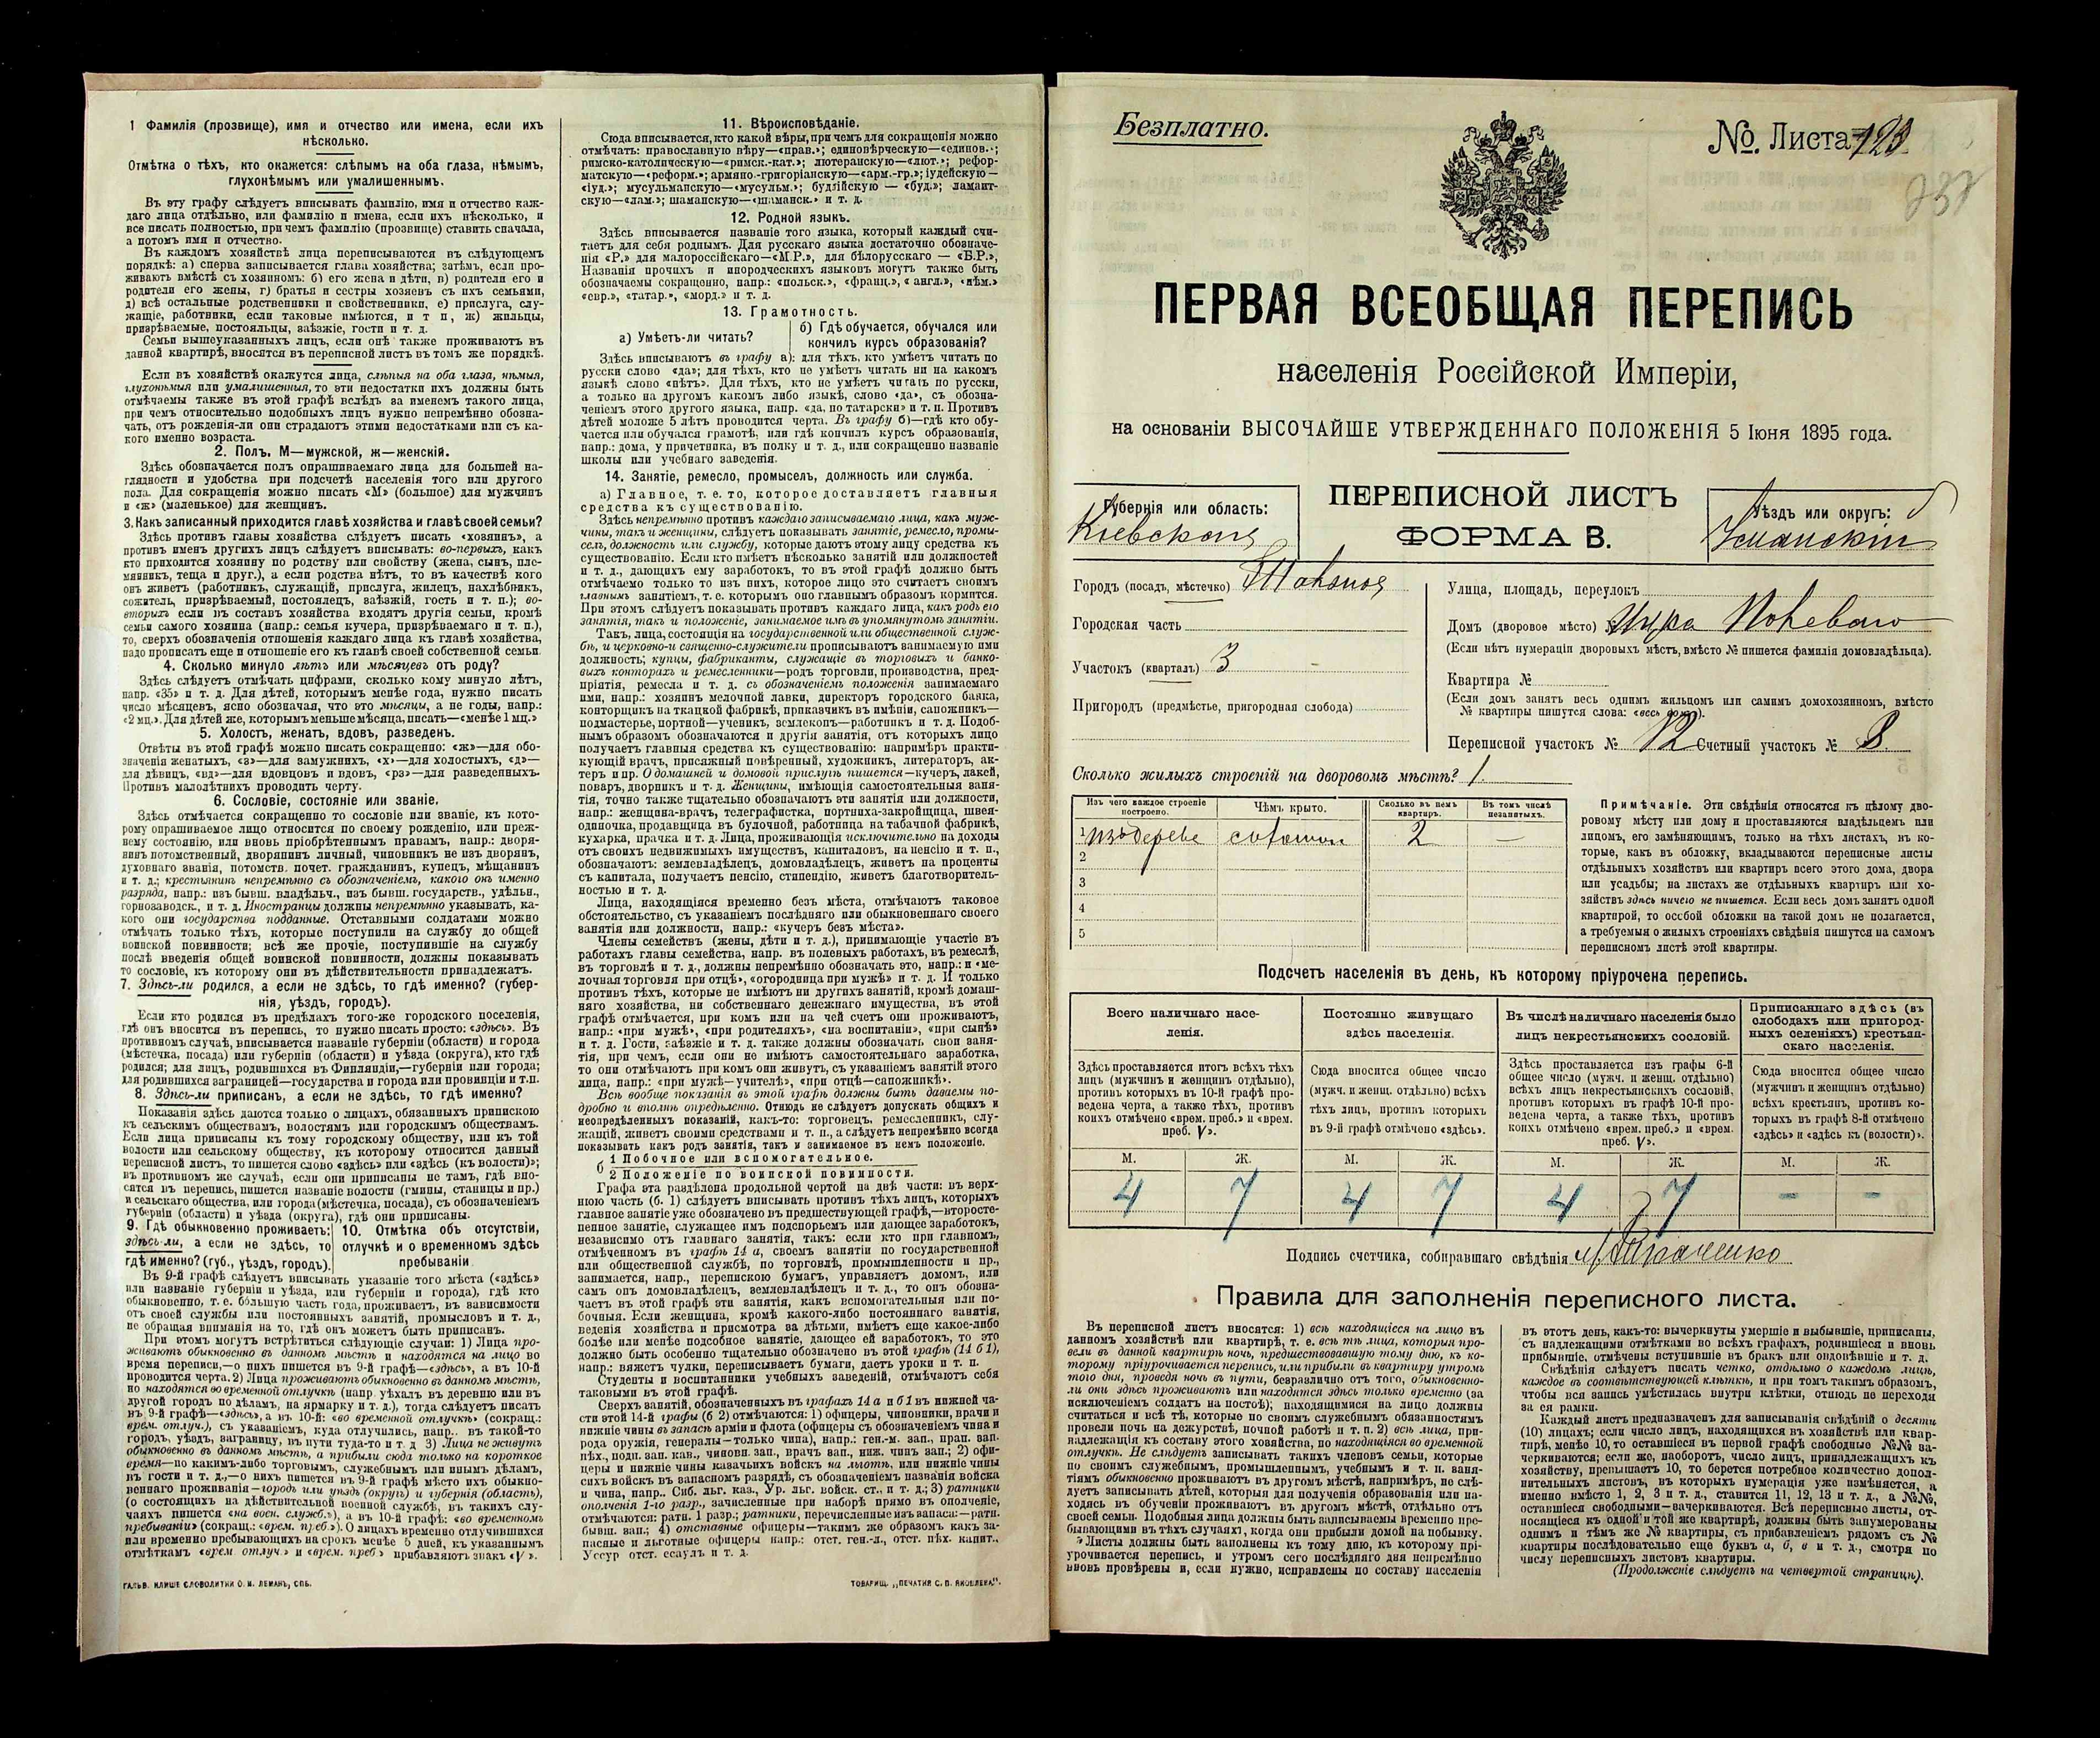 1 Фамилія (прозвище), имя и отчество или имена, если ихъ
нѣсколько.
Отмѣтка о тѣхъ, кто окажется: слѣпымъ на оба глаза, нѣмымъ,
глухонѣмымъ или умалишеннымъ.
Въ эту графу слѣдуетъ вписывать фамилію, имя и отчество каж-
даго лица отдѣльно, или фамилію и имена, если ихъ нѣсколько, и
все писать полностью, при чемъ фамилію (прозвище) ставить сначала,
а потомъ имя и отчество.
Въ каждомъ хозяйствѣ лица переписываются въ слѣдующемъ
порядкѣ: а) сперва записывается глава хозяйства; затѣмъ, если про-
живаютъ вмѣстѣ съ хозяиномъ: б) его жена и дѣти, в) родители его и
родители его жены, г) братья и сестры хозяевъ съ ихъ семьями,
д) всѣ остальные родственники и свойственники, е) прислуга, слу-
жащіе, работники, если таковые имѣются, и т п, ж) жильцы,
призрѣваемые, постояльцы, заѣзжіе, гости и т. д.
Семьи вышеуказанныхъ лицъ, если онѣ также проживаютъ въ
данной квартирѣ, вносятся въ переписной листъ въ томъ же порядкѣ.
Если въ хозяйствѣ окажутся лица, слѣпыя на оба глаза, нѣмыя,
глухонѣмыя или умалишенныя, то эти недостатки ихъ должны быть
отмѣчаемы также въ этой графѣ вслѣдъ за именемъ такого лица,
при чемъ относительно подобныхъ лицъ нужно непремѣнно обозна-
чать, отъ рожденія-ли они страдаютъ этими недостатками или съ ка-
кого именно возраста.
2. Полъ. М—мужской, ж—женскій.
Здѣсь обозначается полъ опрашиваемаго лица для большей на-
глядности и удобства при подсчетѣ населенія того или другого
пола. Для сокращенія можно писать «М» (большое) для мужчинъ
и «ж» (маленькое) для женщинъ.
3. Какъ записанный приходится главѣ хозяйства и главѣ своей семьи?
Здѣсь противъ главы хозяйства слѣдуетъ писать «хозяинъ», а
противъ именъ другихъ лицъ слѣдуетъ вписывать: во-первыхъ, какъ
кто приходится хозяину по родству или свойству (жена, сынъ, пле-
мянникъ, теща и друг.), а если родства нѣтъ, то въ качествѣ кого
онъ живетъ (работникъ, служащій, прислуга, жилецъ, нахлѣбникъ,
сожитель, призрѣваемый, постоялецъ, заѣзжій, гость и т. п.); во-
вторыхъ если въ составъ хозяйства входятъ другія семьи, кромѣ
семьи самого хозяина (напр.: семья кучера, призрѣваемаго и т. п.),
то, сверхъ обозначенія отношенія каждаго лица къ главѣ хозяйства,
надо прописать еще и отношеніе его къ главѣ своей собственной семьи.
4. Сколько минуло лѣтъ или мѣсяцевъ отъ роду?
Здѣсь слѣдуетъ отмѣчать цифрами, сколько кому минуло лѣтъ,
напр. «35» и т. д. Для дѣтей, которымъ менѣе года, нужно писать
число мѣсяцевъ, ясно обозначая, что это мѣсяцы, а не годы, напр.:
«2 мц.». Для дѣтей же, которымъ меньше мѣсяца, писать—«менѣе 1 мц.»
5. Холостъ, женатъ, вдовъ, разведенъ.
Отвѣты въ этой графѣ можно писать сокращенно: «ж»—для обо-
значенія женатыхъ, «з»—для замужнихъ, «х»—для холостыхъ, «д»—
для дѣвицъ, «вд»—для вдовцовъ и вдовъ, «рз»—для разведенныхъ.
Противъ малолѣтнихъ проводить черту.
6. Сословіе, состояніе или званіе.
Здѣсь отмѣчается сокращенно то сословіе или званіе, къ кото-
рому опрашиваемое лицо относится по своему рожденію, или преж-
нему состоянію, или вновь пріобрѣтеннымъ правамъ, напр.: дворя-
нинъ потомственный, дворянинъ личный, чиновникъ не изъ дворянъ,
духовнаго званія, потомств. почет. гражданинъ, купецъ, мѣщанинъ
и т. д.; крестьянинъ непремѣнно съ обозначеніемъ, какого онъ именно
разряда, напр.: изъ бывш. владѣльч., изъ бывш. государств., удѣльн.,
горнозаводск., и т. д. Иностранцы должны непремѣнно указывать, ка-
кого они государства подданные. Отставными солдатами можно
отмѣчать только тѣхъ, которые поступили на службу до общей
воинской повинности; всѣ же прочіе, поступившіе на службу
послѣ введенія общей воинской повинности, должны показывать
то сословіе, къ которому они въ дѣйствительности принадлежатъ.
7. Здѣсь-ли родился, а если не здѣсь, то гдѣ именно? (губер-
нія, уѣздъ, городъ).
Если кто родился въ предѣлахъ того-же городского поселенія,
гдѣ онъ вносится въ перепись, то нужно писать просто: «здѣсь». Въ
противномъ случаѣ, вписывается названіе губерніи (области) и города
(мѣстечка, посада) или губерніи (области) и уѣзда (округа), кто гдѣ
родился; для лицъ, родившихся въ Финляндіи,—губерніи или города;
для родившихся заграницей—государства и города или провинціи и т.п.
8. Здѣсь-ли приписанъ, а если не здѣсь, то гдѣ именно?
Показанія здѣсь даются только о лицахъ, обязанныхъ припискою
къ сельскимъ обществамъ, волостямъ или городскимъ обществамъ.
Если лица приписаны къ тому городскому обществу, или къ той
волости или сельскому обществу, къ которому относится данный
переписной листъ, то пишется слово «здѣсь» или «здѣсь (къ волости)»;
въ противномъ же случаѣ, если они приписаны не тамъ, гдѣ вно-
сятся въ перепись, пишется названіе волости (гмины, станицы и пр.)
и сельскаго общества, или города (мѣстечка, посада), съ обозначеніемъ
губерніи (области) и уѣзда (округа), гдѣ они приписаны.
9. Гдѣ обыкновенно проживаетъ:
здѣсь-ли, а если не здѣсь, то
гдѣ именно? (губ., уѣздъ, городъ).
10. Отмѣтка объ отсутствіи,
отлучкѣ и о временномъ здѣсь
пребываніи
Въ 9-й графѣ слѣдуетъ вписывать указаніе того мѣста («здѣсь»
или названіе губерніи и уѣзда, или губерніи и города), гдѣ кто
обыкновенно, т. е. большую часть года, проживаетъ, въ зависимости
отъ своей службы или постоянныхъ занятій, промысловъ и т. д.,
не обращая вниманія на то, гдѣ онъ можетъ быть приписанъ.
При этомъ могутъ встрѣтиться слѣдующіе случаи: 1) Лица про-
живаютъ обыкновенно въ данномъ мѣстѣ и находятся на лицо во
время переписи,—о нихъ пишется въ 9-й графѣ—«здѣсь», а въ 10-й
проводится черта. 2) Лица проживаютъ обыкновенно въ данномъ мѣстѣ,
но находятся во временной отлучкѣ (напр. уѣхалъ въ деревню или въ
другой городъ по дѣламъ, на ярмарку и т. д.), тогда слѣдуетъ писать
въ 9-й графѣ—«здѣсь», а въ 10-й: «во временной отлучкѣ» (сокращ.:
врем. отлуч.), съ указаніемъ, куда отлучились, напр.. въ такой-то
городъ, уѣздъ, заграницу, въ пути туда-то и т. д 3) Лица не живутъ
обыкновенно въ данномъ мѣстѣ, а прибыли сюда только на короткое
время—по какимъ-либо торговымъ, служебнымъ или инымъ дѣламъ,
въ гости и т. д.,—о нихъ пишется въ 9-й графѣ мѣсто ихъ обыкно-
веннаго проживанія—городъ или уѣздъ (округъ) и губернія (область),
(о состоящихъ на дѣйствительной военной службѣ, въ такихъ слу-
чаяхъ пишется «на воен. службѣ»), а въ 10-й графѣ: «во временномъ
пребываніи» (сокращ.: «врем. преб.»). О лицахъ временно отлучившихся
или временно пребывающихъ на срокъ менѣе 5 дней, къ указаннымъ
отмѣткамъ «врем. отлуч.» и «врем. преб» прибавляютъ знакъ «V».
ГАЛЬВ. КЛИШЕ СЛОВОЛИТНИ О. И. ЛЕМАНЪ, СПБ.
11. Вѣроисповѣданіе.
Сюда вписывается, кто какой вѣры, при чемъ для сокращенія можно
отмѣчать: православную вѣру—«прав.»; единовѣрческую—«единов.»;
римско-католическую—«римск.-кат.»; лютеранскую—«лют.»; рефор-
матскую—«реформ.»; армяно-григоріанскую—«арм.-гр.»; іудейскую—
«іуд.»; мусульманскую—«мусульм.»; буддійскую — «буд.»; ламаит-
скую—«лам.»; шаманскую—«шаманск.» и т. д.
12. Родной языкъ.
Здѣсь вписывается названіе того языка, который каждый счи-
таетъ для себя роднымъ. Для русскаго языка достаточно обозначе-
нія «Р.» для малороссійскаго—«М.Р.», для бѣлорусскаго — «Б.Р.»,
Названія прочихъ и инородческихъ языковъ могутъ также быть
обозначаемы сокращенно, напр.: «польск.», «франц.», « англ.», «нѣм.»
«евр.», «татар.», «морд.» и т. д.
13. Грамотность.
а) Умѣетъ-ли читать?
б) Гдѣ обучается, обучался или
кончилъ курсъ образованія?
Здѣсь вписываютъ въ графу а): для тѣхъ, кто умѣетъ читать по
русски слово «да»; для тѣхъ, кто не умѣетъ читать ни на какомъ
языкѣ слово «нѣтъ». Для тѣхъ, кто не умѣетъ читать по русски,
а только на другомъ какомъ либо языкѣ, слово «да», съ обозна-
ченіемъ этого другого языка, напр. «да, по татарски» и т. п. Противъ
дѣтей моложе 5 лѣтъ проводится черта. Въ графу б)—гдѣ кто обу-
чается или обучался грамотѣ, или гдѣ кончилъ курсъ образованія,
напр.: дома, у причетника, въ полку и т. д., или сокращенно названіе
школы или учебнаго заведенія.
14. Занятіе, ремесло, промыселъ, должность или служба.
а) Главное, т. е. то, которое доставляетъ главныя
средства къ существованію.
Здѣсь непремѣнно противъ каждаго записываемаго лица, какъ муж-
чины, такъ и женщины, слѣдуетъ показывать занятіе, ремесло, промы-
селъ, должность или службу, которые даютъ этому лицу средства къ
существованію. Если кто имѣетъ нѣсколько занятій или должностей
и т. д., дающихъ ему заработокъ, то въ этой графѣ должно быть
отмѣчаемо только то изъ нихъ, которое лицо это считаетъ своимъ
главнымъ занятіемъ, т. е. которымъ оно главнымъ образомъ кормится.
При этомъ слѣдуетъ показывать противъ каждаго лица, какъ родъ его
занятія, такъ и положеніе, занимаемое имъ въ упомянутомъ занятіи.
Такъ, лица, состоящія на государственной или общественной служ-
бѣ, и церковно-и священно-служители прописываютъ занимаемую ими
должность; купцы, фабриканты, служащіе въ торговыхъ и банко-
выхъ конторахъ и ремесленники—родъ торговли, производства, пред-
пріятія, ремесла и т. д. съ обозначеніемъ положенія занимаемаго
ими, напр.: хозяинъ мелочной лавки, директоръ городского банка,
конторщикъ на ткацкой фабрикѣ, приказчикъ въ имѣніи, сапожникъ—
подмастерье, портной—ученикъ, землекопъ—работникъ и т. д. Подоб-
нымъ образомъ обозначаются и другія занятія, отъ которыхъ лицо
получаетъ главныя средства къ существованію: напримѣръ практи-
кующій врачъ, присяжный повѣренный, художникъ, литераторъ, ак-
теръ и пр. О домашней и домовой прислугѣ пишется—кучеръ, лакей,
поваръ, дворникъ и т. д. Женщины, имѣющія самостоятельныя заня-
тія, точно также тщательно обозначаютъ эти занятія или должности,
напр.: женщина-врачъ, телеграфистка, портниха-закройщица, швея-
одиночка, продавщица въ булочной, работница на табачной фабрикѣ,
кухарка, прачка и т. д. Лица, проживающія исключительно на доходы
отъ своихъ недвижимыхъ имуществъ, капиталовъ, на пенсію и т. п.,
обозначаютъ: землевладѣлецъ, домовладѣлецъ, живетъ на проценты
съ капитала, получаетъ пенсію, стипендію, живетъ благотворитель-
ностью и т. д.
Лица, находящіяся временно безъ мѣста, отмѣчаютъ таковое
обстоятельство, съ указаніемъ послѣдняго или обыкновеннаго своего
занятія или должности, напр.: «кучеръ безъ мѣста».
Члены семействъ (жены, дѣти и т. д.), принимающіе участіе въ
работахъ главы семейства, напр. въ полевыхъ работахъ, въ ремеслѣ,
въ торговлѣ и т. д., должны непремѣнно обозначать это, напр.: и «ме-
лочная торговля при отцѣ», «огородница при мужѣ» и т. д. И только
противъ тѣхъ, которые не имѣютъ ни другихъ занятій, кромѣ домаш-
няго хозяйства, ни собственнаго денежнаго имущества, въ этой
графѣ отмѣчается, при комъ или на чей счетъ они проживаютъ,
напр.: «при мужѣ», «при родителяхъ», «на воспитаніи», «при сынѣ»
и т. д. Гости, заѣзжіе и т. д. также должны обозначать свои заня-
тія, при чемъ, если они не имѣютъ самостоятельнаго заработка,
то они отмѣчаютъ при комъ они живутъ, съ указаніемъ занятій этого
лица, напр.: «при мужѣ—учителѣ», «при отцѣ—сапожникѣ».
Всѣ вообще показанія въ этой графѣ должны быть даваемы по-
дробно и вполнѣ опредѣленно. Отнюдь не слѣдуетъ допускать общихъ и
неопредѣленныхъ показаній, какъ-то: торговецъ, ремесленникъ, слу-
жащій, живетъ своими средствами и т. п., а слѣдуетъ непремѣнно всегда
показывать какъ родъ занятія, такъ и занимаемое въ немъ положеніе.
б 1 Побочное или вспомогательное.
2 Положеніе по воинской повинности.
Графа эта раздѣлена продольной чертой на двѣ части: въ верх-
нюю часть (б. 1) слѣдуетъ вписывать противъ тѣхъ лицъ, которыхъ
главное занятіе уже обозначено въ предшествующей графѣ,—второсте-
пенное занятіе, служащее имъ подспорьемъ или дающее заработокъ,
независимо отъ главнаго занятія, такъ: если кто при главномъ,
отмѣченномъ въ графѣ 14 а, своемъ занятіи по государственной
или общественной службѣ, по торговлѣ, промышленности и пр.,
занимается, напр., перепискою бумагъ, управляетъ домомъ, или
самъ онъ домовладѣлецъ, землевладѣлецъ и т. д., то онъ обозна-
чаетъ въ этой графѣ эти занятія, какъ вспомогательныя или по-
бочныя. Если женщина, кромѣ какого-либо постояннаго занятія,
веденія хозяйства и присмотра за дѣтьми, имѣетъ еще какое-либо
болѣе или менѣе подсобное занятіе, дающее ей заработокъ, то это
должно быть особенно тщательно обозначено въ этой графѣ (14 б 1),
напр.: вяжетъ чулки, переписываетъ бумаги, даетъ уроки и т. п.
Студенты и воспитанники учебныхъ заведеній, отмѣчаютъ себя
таковыми въ этой графѣ.
Сверхъ занятій, обозначенныхъ въ графахъ 14 а и б 1 въ нижней ча-
сти этой 14-й графы (б 2) отмѣчаются: 1) офицеры, чиновники, врачи и
нижніе чины въ запасѣ арміи и флота (офицеры съ обозначеніемъ чина и
рода оружія, генералы—только чина), напр.: ген.-м. зап., прап. зап.
пѣх., подп. зап. кав., чиновн. зап., врачъ зап., ниж. чинъ зап.; 2) офи-
церы и нижніе чины казачьихъ войскъ на льготѣ, или нижніе чины
сихъ войскъ въ запасномъ разрядѣ, съ обозначеніемъ названія войска
и чина, напр.. Сиб. льг. каз., Ур. льг. войск. ст., и т. д.; 3) ратники
ополченія 1-го разр., зачисленные при наборѣ прямо въ ополченіе,
отмѣчаются: ратн. 1 разр.; ратники, перечисленные изъ запаса:—ратн.
бывш. зап.; 4) отставные офицеры—такимъ же образомъ какъ за-
пасные и льготные офицеры напр.: отст. ген.-л., отст. пѣх. капит.,
Уссур отст. есаулъ и т. д.
ТОВАРИЩ. „ПЕЧАТНЯ С. П. ЯКОВЛЕВА“.
Безплатно.
No. Листа 123
ПЕРВАЯ ВСЕОБЩАЯ ПЕРЕПИСЬ
населенія Россійской Имперіи,
на основаніи ВЫСОЧАЙШЕ УТВЕРЖДЕННАГО ПОЛОЖЕНІЯ 5 Іюня 1895 года.
ПЕРЕПИСНОЙ ЛИСТЪ
ФОРМА В.
Губернія или область:
Кіевская
Уѣздъ или округъ:
Уманскій
Городъ (посадъ, мѣстечко)
Городская часть
Участокъ (кварталъ) 3
Пригородъ (предмѣстье, пригородная слобода)
Улица, площадь, переулокъ
Домъ (дворовое мѣсто) №
(Если нѣтъ нумераціи дворовыхъ мѣстъ, вмѣсто № пишется фамилія домовладѣльца).
Квартира №
(Если домъ занятъ весь однимъ жильцомъ или самимъ домохозяиномъ, вмѣсто
№ квартиры пишутся слова: «весь домъ»).
Переписной участокъ № 12 Счетный участокъ № 8.
Сколько жилыхъ строеній на дворовомъ мѣстѣ? 1
Изъ чего каждое строеніе построено.
Чѣмъ крыто.
Сколько въ немъ квартиръ.
Въ томъ числѣ незанятыхъ.
1 изъ дерева 2 —
2
3
4
5
Примѣчаніе. Эти свѣдѣнія относятся къ цѣлому дво-
ровому мѣсту или дому и проставляются владѣльцемъ или
лицомъ, его замѣняющимъ, только на тѣхъ листахъ, въ ко-
торые, какъ въ обложку, вкладываются переписные листы
отдѣльныхъ хозяйствъ или квартиръ всего этого дома, двора
или усадьбы; на листахъ же отдѣльныхъ квартиръ или хо-
зяйствъ здѣсь ничего не пишется. Если весь домъ занятъ одной
квартирой, то особой обложки на такой домъ не полагается,
а требуемыя о жилыхъ строеніяхъ свѣдѣнія пишутся на самомъ
переписномъ листѣ этой квартиры.
Подсчетъ населенія въ день, къ которому пріурочена перепись.
Всего наличнаго насе-
ленія.
Постоянно живущаго
здѣсь населенія.
Въ числѣ наличнаго населенія было
лицъ некрестьянскихъ сословій.
Приписаннаго здѣсь (въ
слободахъ или пригород-
ныхъ селеніяхъ) крестьян-
скаго населенія.
Здѣсь проставляется итогъ всѣхъ тѣхъ
лицъ (мужчинъ и женщинъ отдѣльно),
противъ которыхъ въ 10-й графѣ про-
ведена черта, а также тѣхъ, противъ
коихъ отмѣчено «врем. преб.» и «врем.
преб. V».
Сюда вносится общее число
(мужч. и женщ. отдѣльно) всѣхъ
тѣхъ лицъ, противъ которыхъ
въ 9-й графѣ отмѣчено «здѣсь».
Здѣсь проставляется изъ графы 6-й
общее число (мужч. и женщ. отдѣльно)
всѣхъ лицъ некрестьянскихъ сословій,
противъ которыхъ въ 10-й графѣ про-
ведена черта, а также тѣхъ, противъ
коихъ отмѣчено «врем. преб.» и «врем.
преб. V».
Сюда вносится общее число
(мужчинъ и женщинъ отдѣльно)
всѣхъ крестьянъ, противъ ко-
торыхъ въ графѣ 8-й отмѣчено
«здѣсь» и «здѣсь къ (волости)».
М. Ж. М. Ж. М. Ж. М. Ж.
4 7 4 7 4 7 - -
Подпись счетчика, собиравшаго свѣдѣнія
Правила для заполненія переписного листа.
Въ переписной листъ вносятся: 1) всѣ находящіеся на лицо въ
данномъ хозяйствѣ или квартирѣ, т. е. всѣ тѣ лица, которыя про-
вели въ данной квартирѣ ночь, предшествовавшую тому дню, къ ко-
торому пріурочивается перепись, или прибыли въ квартиру утромъ
того дня, проведя ночь въ пути, безразлично отъ того, обыкновенно-
ли они здѣсь проживаютъ или находятся здѣсь только временно (за
исключеніемъ солдатъ на постоѣ); находящимися на лицо должны
считаться и всѣ тѣ, которые по своимъ служебнымъ обязанностямъ
провели ночь на дежурствѣ, ночной работѣ и т. п. 2) всѣ лица, при-
надлежащія къ составу этого хозяйства, но находящіяся во временной
отлучкѣ. Не слѣдуетъ записывать такихъ членовъ семьи, которые
по своимъ служебнымъ, промышленнымъ, учебнымъ и т. п. заня-
тіямъ обыкновенно проживаютъ въ другомъ мѣстѣ, напримѣръ, не слѣ-
дуетъ записывать дѣтей, которыя для полученія образованія или на-
ходясь въ обученіи проживаютъ въ другомъ мѣстѣ, отдѣльно отъ
своей семьи. Подобныя лица должны быть записываемы временно пре-
бывающими въ тѣхъ случаяхъ, когда они прибыли домой на побывку.
Листы должны быть заполнены къ тому дню, къ которому прі-
урочивается перепись, и утромъ сего послѣдняго дня непремѣнно
вновь провѣрены и, если нужно, исправлены по составу населенія
въ этотъ день, какъ-то: вычеркнуты умершіе и выбывшіе, приписаны,
съ надлежащими отмѣтками во всѣхъ графахъ, родившіеся и вновь
прибывшіе, отмѣчены вступившіе въ бракъ или овдовѣвшіе и т. д.
Свѣдѣнія слѣдуетъ писать четко, отдѣльно о каждомъ лицѣ,
каждое въ соотвѣтствующей клѣткѣ, и при томъ такимъ образомъ,
чтобы вся запись умѣстилась внутри клѣтки, отнюдь не переходя
за ея рамки.
Каждый листъ предназначенъ для записыванія свѣдѣній о десяти
(10) лицахъ; если число лицъ, находящихся въ хозяйствѣ или квар-
тирѣ, менѣе 10, то оставшіеся въ первой графѣ свободные №№ за-
черкиваются; если же, наоборотъ, число лицъ, принадлежащихъ къ
хозяйству, превышаетъ 10, то берется потребное количество допол-
нительныхъ листовъ, въ которыхъ нумерація уже измѣняется, а
именно вмѣсто 1, 2, 3 и т. д., ставится 11, 12, 13 и т. д., а №№,
оставшіеся свободными—зачеркиваются. Всѣ переписные листы, от-
носящіеся къ одной и той же квартирѣ, должны быть занумерованы
однимъ и тѣмъ же № квартиры, съ прибавленіемъ рядомъ съ №
квартиры послѣдовательно еще буквъ а, б, в и т. д., смотря по
числу переписныхъ листовъ квартиры.
(Продолженіе слѣдуетъ на четвертой страницѣ).